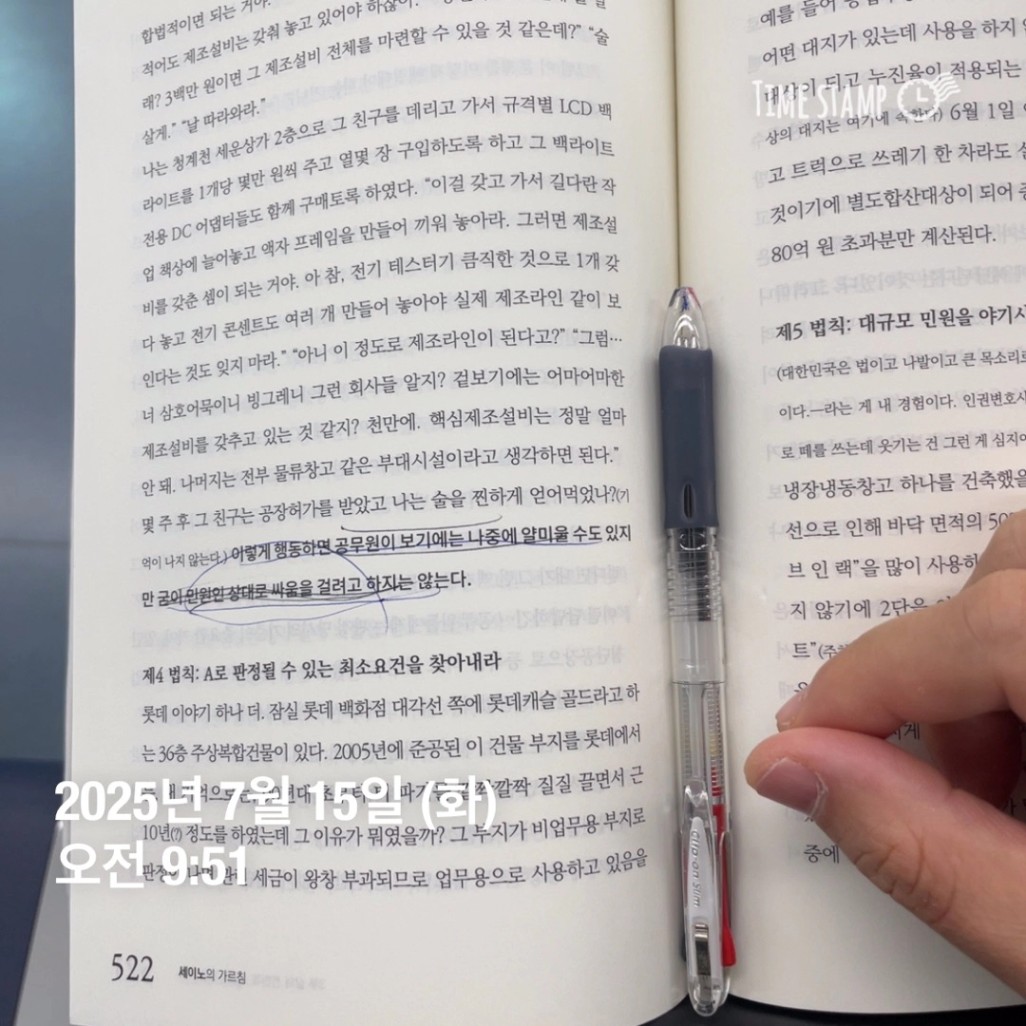 합법적이면 되는 거야.
적어도 제조설비는 갖춰 놓고 있어야 하잖아.
래? 3백만 원이면 그 제조설비 전체를 마련할 수 있을 것 같은데?” “술
살게.” “날 따라와라.”
나는 청계천 세운상가 2층으로 그 친구를 데리고 가서 규격별 LCD 백
라이트를 1개당 몇만 원씩 주고 열몇 장 구입하도록 하고 그 백라이트
전용 DC 어댑터들도 함께 구매토록 하였다. “이걸 갖고 가서 길다란 작
업 책상에 늘어놓고 액자 프레임을 만들어 끼워 놓아라. 그러면 제조설
비를 갖춘 셈이 되는 거야. 아 참, 전기 테스터기 큼직한 것으로 1개 갖
다 놓고 전기 콘센트도 여러 개 만들어 놓아야 실제 제조라인 같이 보
인다는 것도 잊지 마라.” “아니 이 정도로 제조라인이 된다고?” “그럼…
너 삼호어묵이니 빙그레니 그런 회사들 알지? 겉보기에는 어마어마한
제조설비를 갖추고 있는 것 같지? 천만에. 핵심제조설비는 정말 얼마
안 돼. 나머지는 전부 물류창고 같은 부대시설이라고 생각하면 된다.”
몇 주 후 그 친구는 공장허가를 받았고 나는 술을 찐하게 얻어먹었나?(기
억이 나지 않는다.) 이렇게 행동하면 공무원이 보기에는 나중에 얄미울 수도 있지
만 굳이 민원인 상대로 싸움을 걸려고 하지는 않는다.
제4 법칙: A로 판정될 수 있는 최소요건을 찾아내라
롯데 이야기 하나 더. 잠실 롯데 백화점 대각선 쪽에 롯데캐슬 골드라고 하
는 36층 주상복합건물이 있다. 2005년에 준공된 이 건물 부지를 롯데에서
질질 끌면서 근
10년(?) 정도를 하였는데 그 이유가 뭐였을까? 그 부지가 비업무용 부지로
세금이 왕창 부과되므로 업무용으로 사용하고 있음을
522 세이노의 가르침
예를 들어
어떤 대지가 있는데 사용을 하지
되고 누진율이 적용되는
상의 대지는 여기에 속한다) 6월 1일
고 트럭으로 쓰레기 한 차라도
것이기에 별도합산대상이 되어
80억 원 초과분만 계산된다.
제5 법칙: 대규모 민원을 야기시
(대한민국은 법이고 나발이고 큰 목소리로
이다.—라는 게 내 경험이다. 인권변호사
로 떼를 쓰는데 웃기는 건 그런 게 심지어
냉장냉동창고 하나를 건축했을
선으로 인해 바닥 면적의 50
브 인 랙”을 많이 사용하
지 않기에 2단은
트”
중에
TIME STAMP
2025년 7월 15일 (화)
오전 9:51
clip on slim